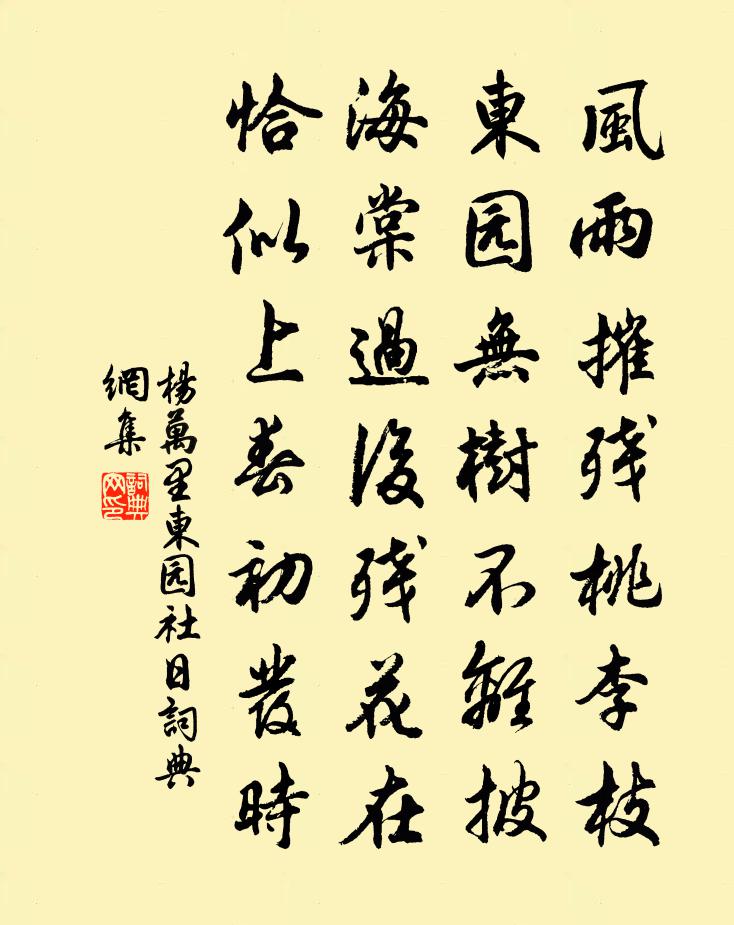 風雨摧残桃李枝
東园無樹不離披
海棠過後残花在
恰似上春初發時
楊萬里東园社日詞典
網集
詞典
网印